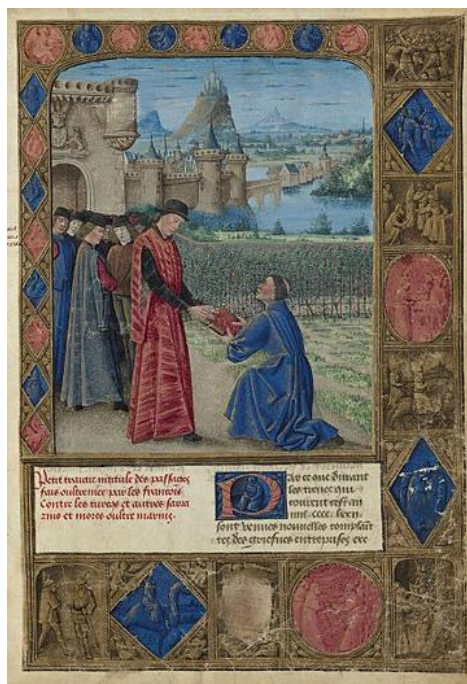 Petit traictie intitule des passaiges
fais oultre mer par les francois
Contre les turcqs et autres sarra
zins et mores oultre marins.
ce que durant
les treues qui
courent est an
mil cccc
sont venues nouuelles complain
tes des griefues entreprises